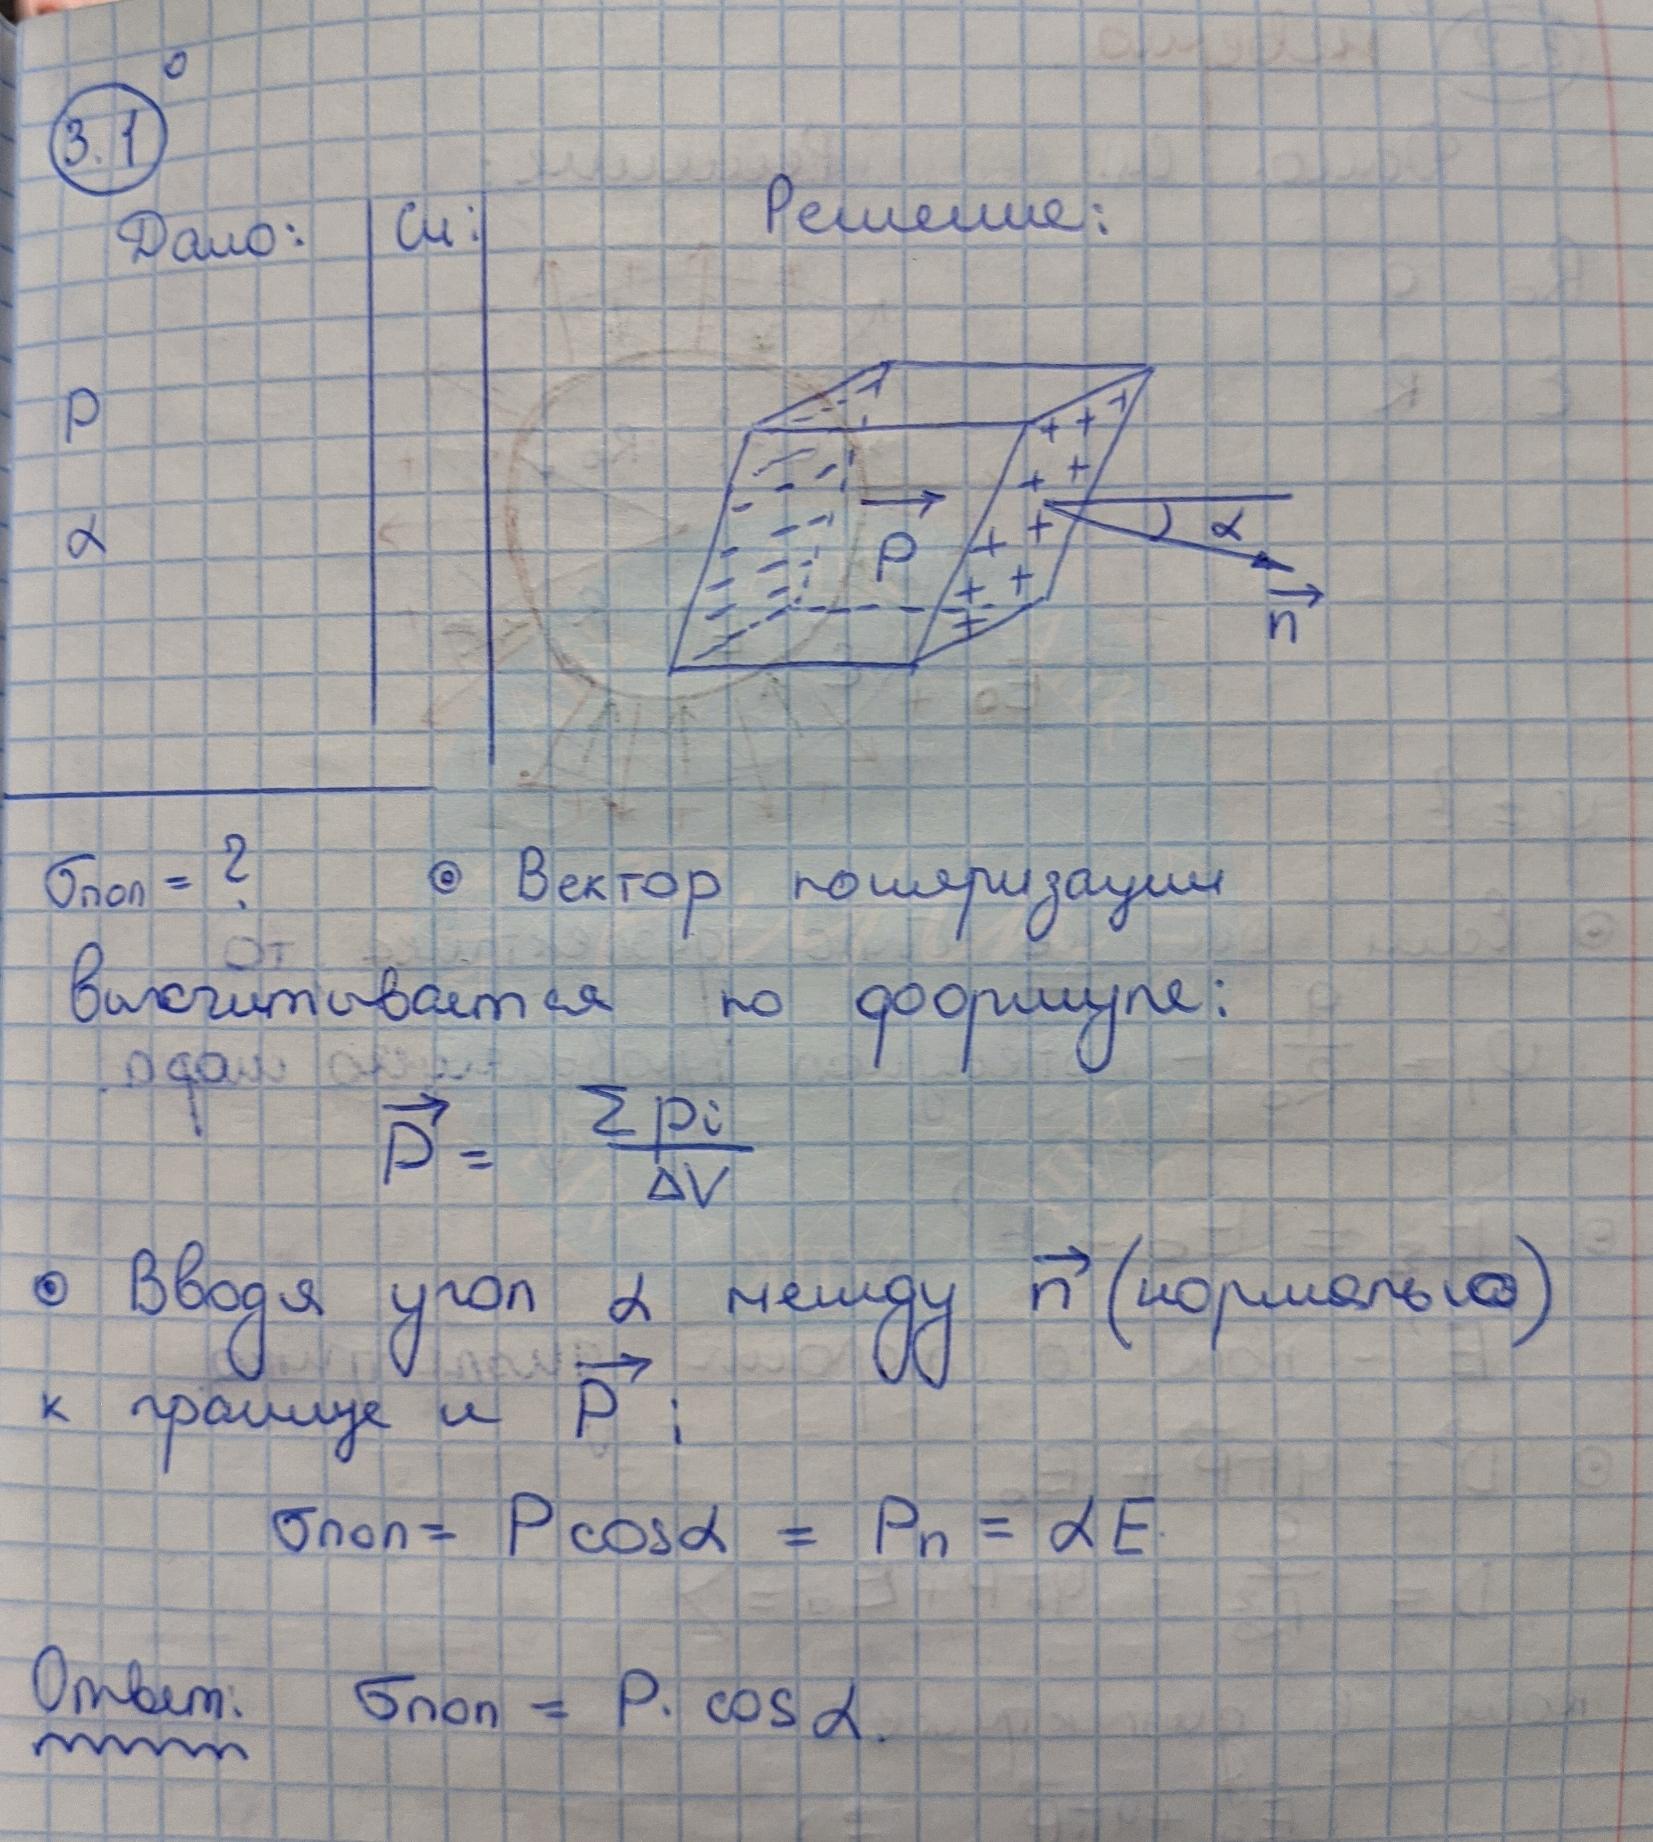 3.1
Дано: Си: Решение:
P
α
P
α
n
σпол = ? Вектор поляризации
высчитывается по формуле:
P = Σpi / ΔV
Вводя угол α между n (нормалью)
к границе и P ;
σпол = P cosα = Pn = αE
Ответ: σпол = P. cos α.